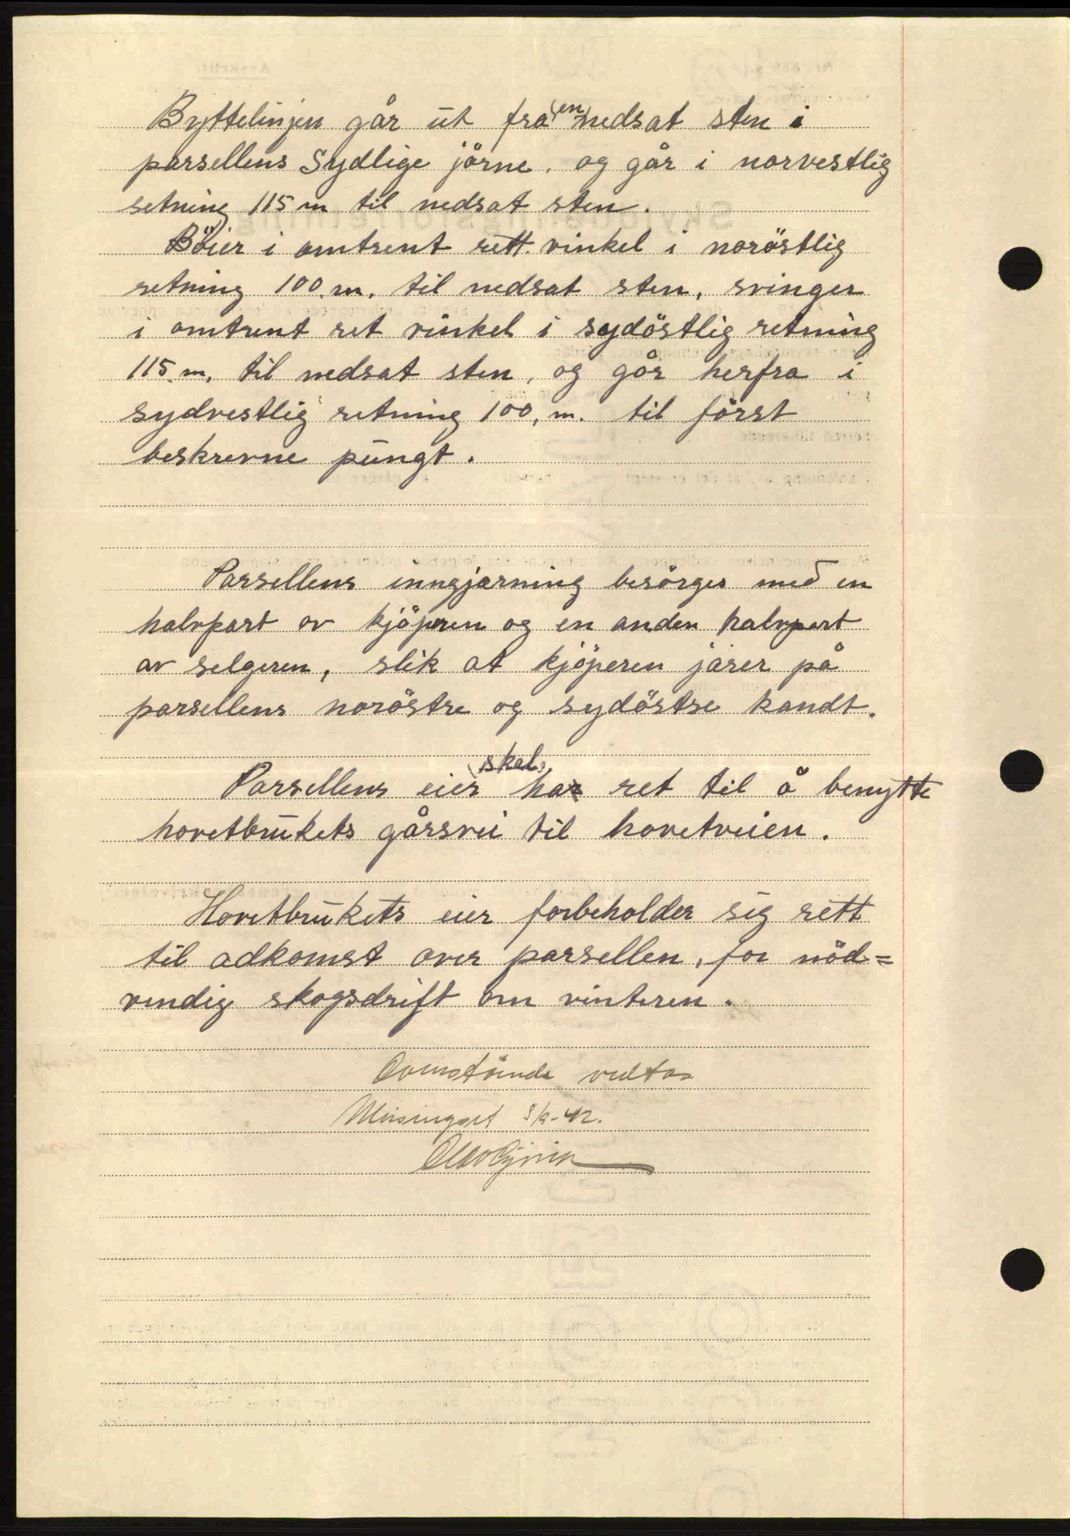 Byttelinjen går ut fra (en) nedsat sten i
parsellens sydlige jörne. og går i norvestlig
retning 115 m til nedsat sten.
Böier i omtrent rett. vinkel i noröstlig
retning 100. m. til nedsat sten, svinger
i omtrent ret vinkel i sydöstlig retning
115. m. til nedsat sten, og går herfra i
sydvestlig retning 100, m. til först
beskrevne pungt.
Parsellens inngjærning besörges med en
halvpart av kjöperen og en anden halvpart
av selgeren, slik at kjöperen järer på
parsellens noröstre og sydöstre kandt.
Parsellens eier (skal) ha ret til å benytte
hovetbrukets gårsvei til hovetveien.
Hovetbrukets eier forbeholder sig rett
til adkomst over parsellen, for nöd=
vendig skogsdrift om vinteren.
Ovenstående vedtas
Meisingset 5/9-42.